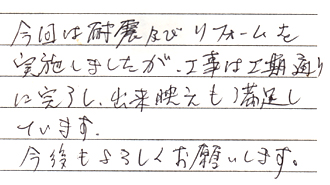 今回は耐震及びリフォームを
実施しましたが、工事は工期通り
に完了し、出来映えも満足し
ています。
今後もよろしくお願いします。